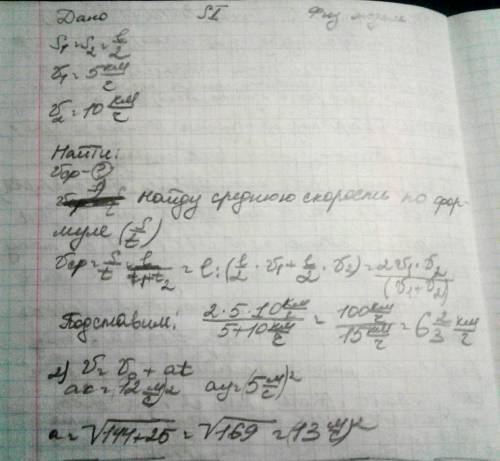 Дано SI Физ
S₁ = S₂ = l/2
v₁ = 5 км/ч
v₂ = 10 км/ч
Найти:
vср - ?
найду среднюю скорость по фор-
муле (S/t)
vср = S/t = l/(t₁+t₂) = l : (l/2 · v₁ + l/2 · v₂) = 2v₁ · v₂/(v₁+v₂)
Подставим: (2·5·10 км/ч)/(5+10 км/ч) = (100 км/ч)/(15 км/ч) = 6 2/3 км/ч
2) v = v₀ + at
ax = 12 (м/с)² ay = (5 м/с)²
a = √144+25 = √169 = (13 м/с)²